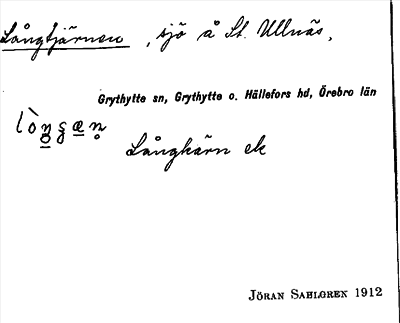 Långtjärnen, sjö å St. Ullnäs,
Grythytte sn, Grythytte o. Hällefors hd, Örebro län
Långkärn ek
JÖRAN SAHLGREN 1912